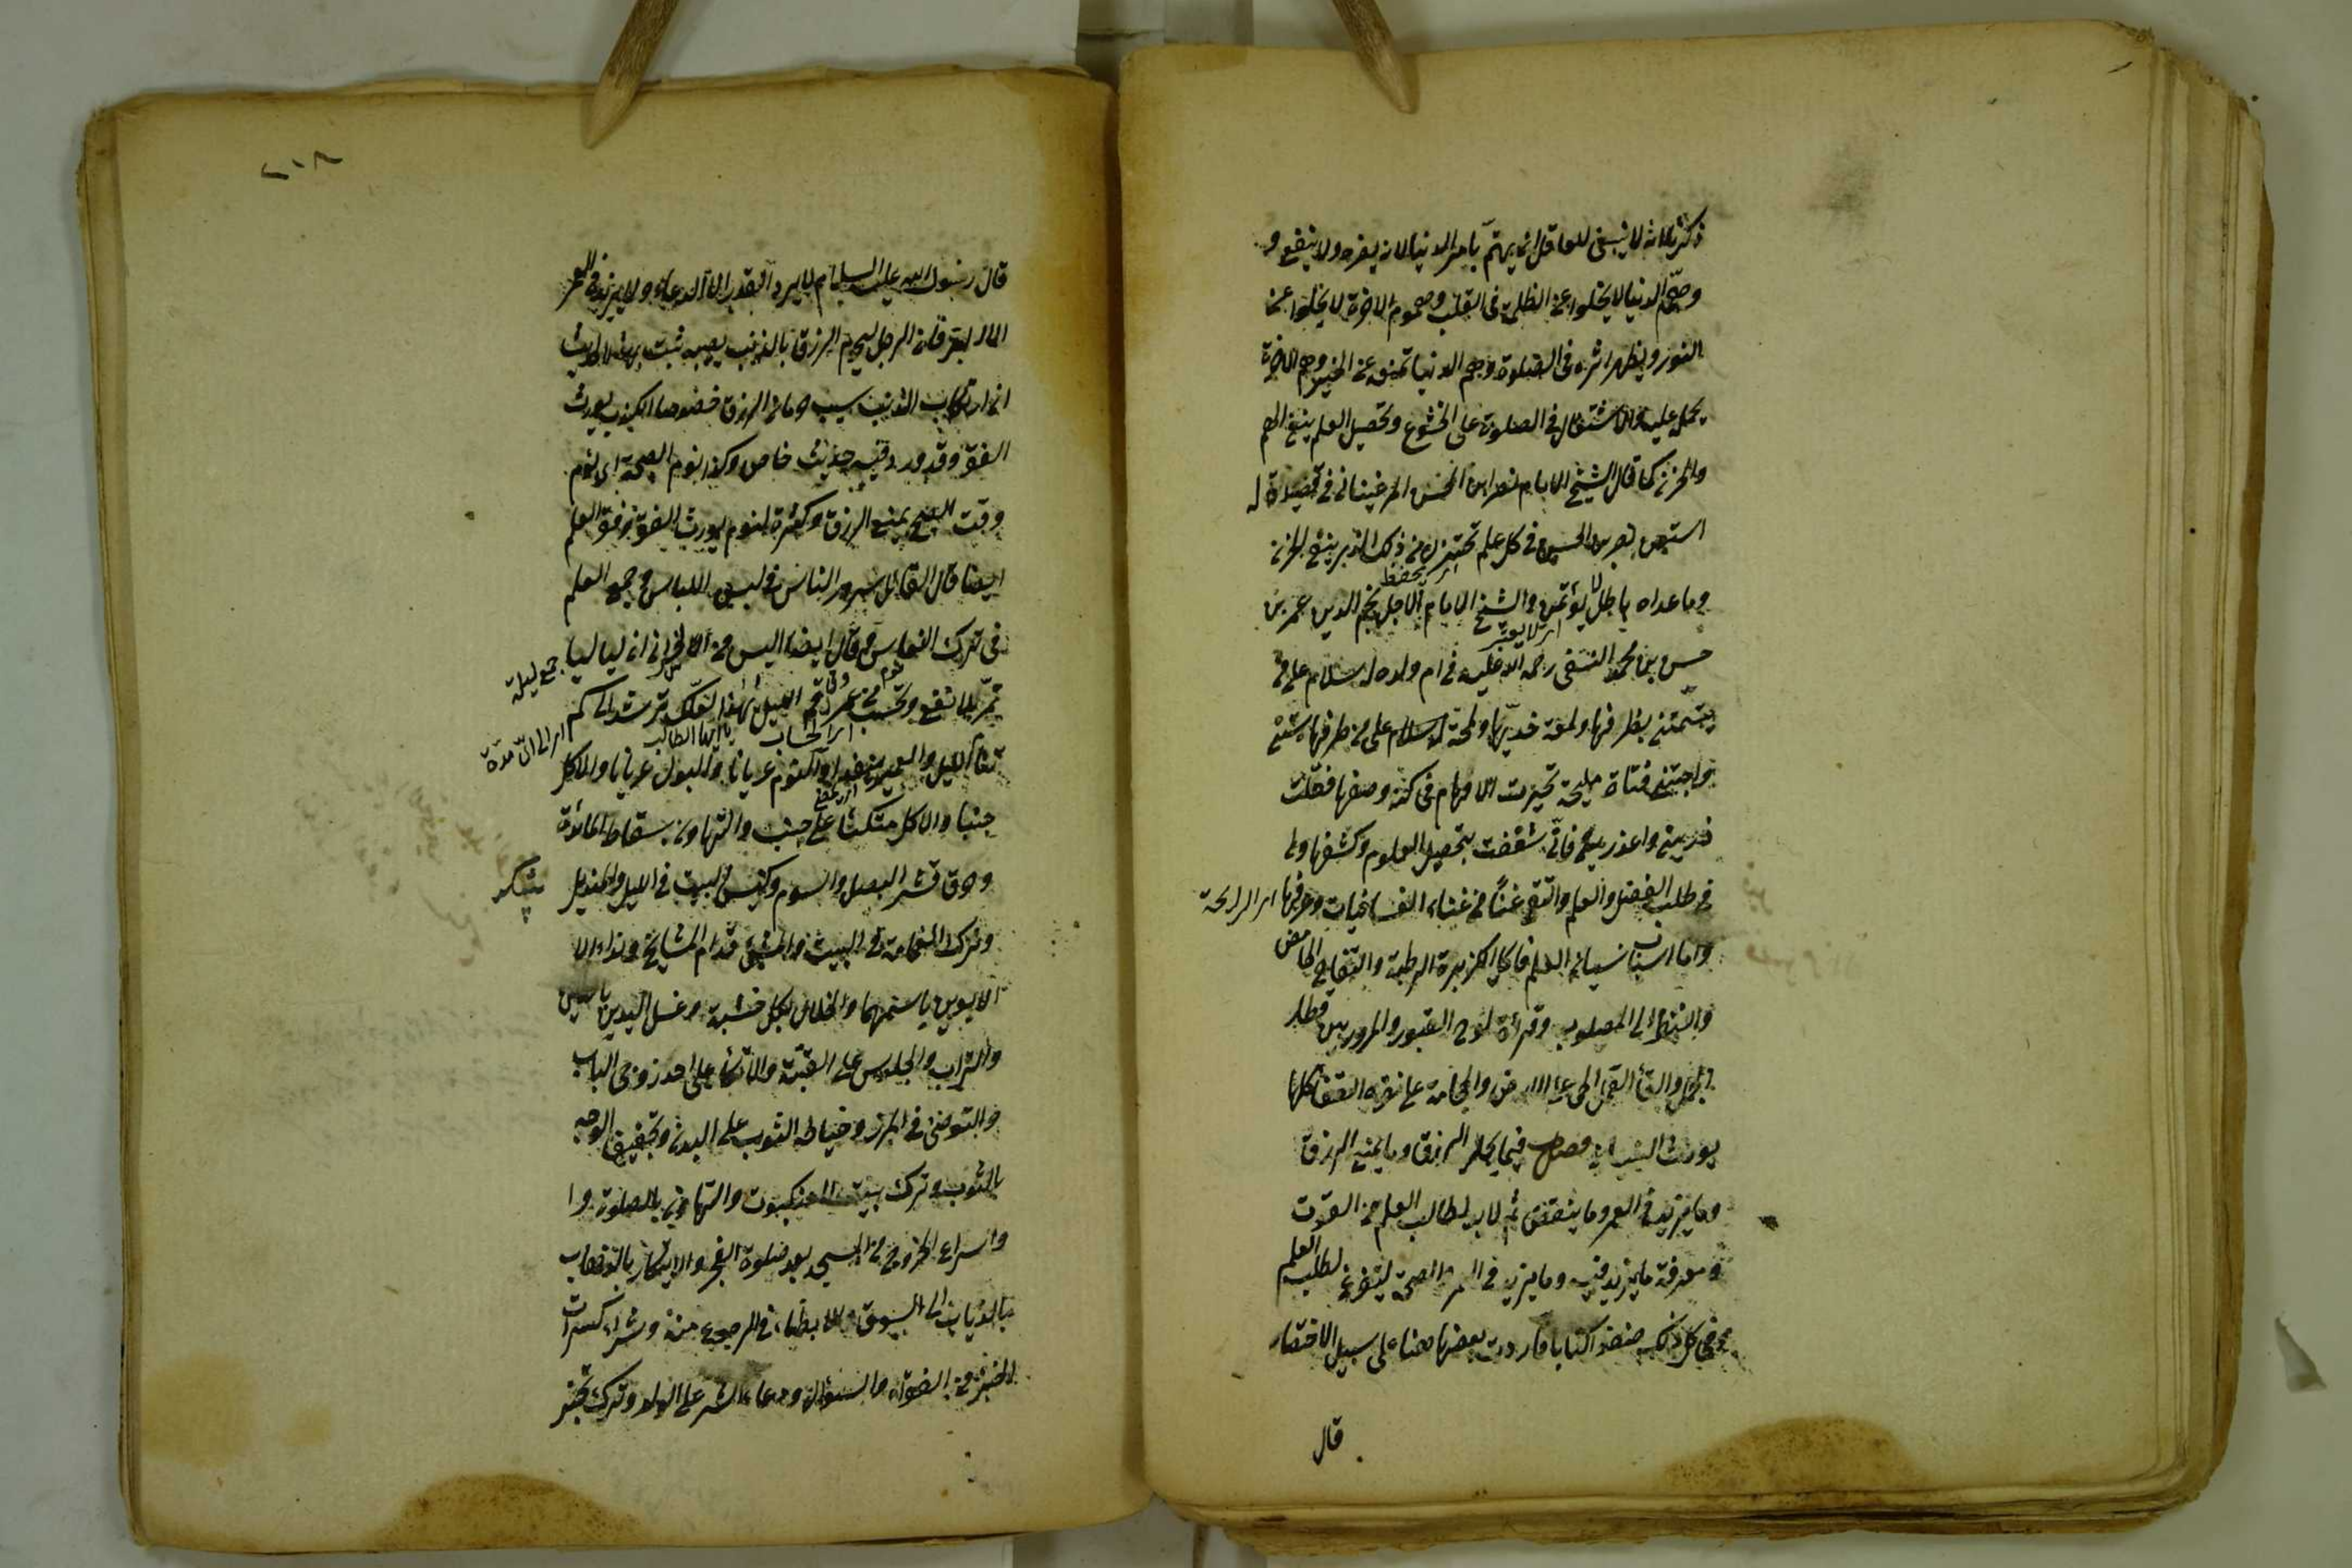 ذكرنا انه لا ينبغى للعاقل ان يهتم بامر الدنيا لانه يضره ولا ينفع و
وهمّ الدنيا لا يخلوا عن الظلمة فى القلب وهموم الاخرة لا يخلوا عن
النور ويظهر اثره فى الصلوة وهم الدنيا تمنعه عن الخير وهم الاخرة
يحمل عليه والاشتغال فى الصلوة على الخشوع وتحصيل العلم ينفى الهم
والحزن كما قال الشيخ الامام نصر ابن الحسن المرغينانى فى قصيدة له
استعن نصر بن الحسن فى كل علم تحتزن من ذلك الذى ينفى الحزن
اى يحفظ
وما عداه باطل لا يؤتمن والشيخ الامام الاجل نجم الدين عمر بن
اى لا يعتبر
حسن بن محمد النسفى رحمه الله عليه فى ام ولد له سلام على من
تيّمتنى بظرفها ولمعة خديها ولمحة سلام على من طرفها سبتنى
واصبتنى فتاة مليحة تحيرت الاوهام فى كنه وصفها فقلت
ذرينى واعذرينى فانّى شغفت بتحصيل العلوم وكشفها ولى
فى طلب الفضل والعلم والتقى غنًا من غناء الغانيات وعرفها اى الرايحة
واما اسباب نسيان العلم فاكل الكزبرة الرطبة والتفاح الحامض
والنظر الى المصلوب وقرأة لوح القبور والمرور بين قطار
الجمل والقاء القمل الحى على الارض والحجامة على نقرة القفا كلها
يورث النسيان فصل فيما يجلب الرزق وما يمنع الرزق
وما يزيد فى العمر وما ينقص ثم لا بد لطالب العلم من القوت
ومعرفة ما يزيد فيه وما يزيد فى العمر والصحة ليتفرغ لطلب العلم
وفى كل ذلك صنفوا كتابا فاوردت بعضها هنا على سبيل الاختصار
قال
٢٠٨
قال رسول الله عليه السلام لا يرد القدر الا الدعاء ولا يزيد فى العمر
الا البر فان الرجل ليحرم الرزق بالذنب يصيبه ثبت بهذا الحديث
ان ارتكاب الذنب سبب حرمان الرزق خصوصا الكذب يورث
الفقر وقد ورد فيه حديث خاص وكذا نوم الصبحة اى نوم
وقت الصبح يمنع الرزق وكثرة النوم يورث الفقر وفقر العلم
ايضا قال القائل سرور الناس فى لبس اللباس وجمع العلم
فى ترك النعاس وقال ايضا اليس من الخسران ان لياليا جمع ليلة
تمرّ بلا نفع وتحسب من عمرى قم الليل يا هذا لعلك ترشد الى كم
اى الحساب يا ايها الطالب اى الى اىّ مدّة
تنام الليل والعمر ينفد والنوم عريانا والبول عريانا والاكل
جنبا والاكل متكئا على جنب والتهاون بسقاط المائدة
وحرق قشر البصل والثوم وكنس البيت فى الليل والمنديل
وترك القمامة فى البيت والمشى قدام المشايخ ونداء الا
الابوين باسمهما والخلال بكل خشبة وغسل اليدين بالطين
والتراب والجلوس على العتبة والاتكاء على احد زوجى الباب
والتوضى فى المبرز وخياطة الثوب على البدن وتجفيف الوجه
بالثوب وترك بيت العنكبوت والتهاون بالصلوة وا
واسراع الخروج من المسجد بعد صلوة الفجر والابتكار بالذهاب
بالذهاب الى السوق والابطاء فى الرجوع منه وشراء كسرات
الخبز من الفقراء والسؤال ودعاء الشر على الولد وترك تخمير